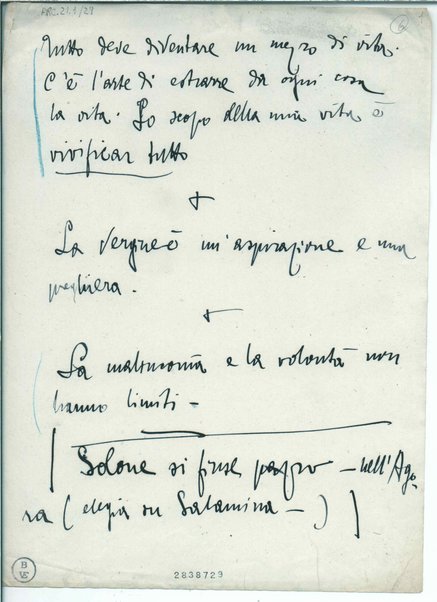 ARC.21.1/29
Tutto deve diventare un mezzo di vita.
C'è l'arte di estrarre da ogni cosa
la vita. Lo scopo della mia vita è
vivificar tutto
+
La Vergine è un'aspirazione e una
preghiera.
+
La malinconia e la volontà non
hanno limiti —
[ Solone si finse pazzo — nell'Ago-
ra (elegia su Salamina —) ]
B
VE
2838729